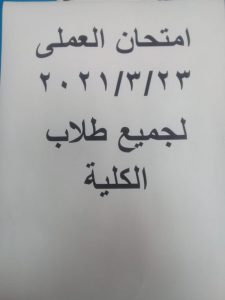 امتحان العملى
٢٠٢١/٣/٢٣
لجميع طلاب
الكلية